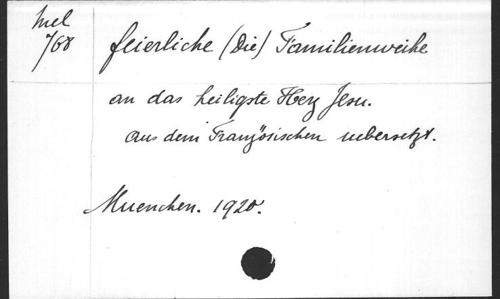 Mel
768
feierliche (Die) Familienweihe
an das heiligste Herz Jesu.
Aus dem Französischen uebersetzt.
Muenchen. 1920.